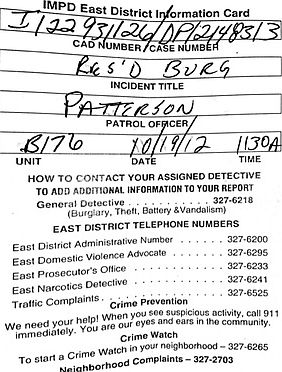 IMPD East District Information Card
I122931126/DP1214831 3
CAD NUMBER/CASE NUMBER
RES'D BURG
INCIDENT TITLE
PATTERSON
PATROL OFFICER
B176 10/19/12 1130A
UNIT DATE TIME
HOW TO CONTACT YOUR ASSIGNED DETECTIVE
TO ADD ADDITIONAL INFORMATION TO YOUR REPORT
General Detective . . . . . . . . . . . . 327-6218
(Burglary, Theft, Battery &Vandalism)
EAST DISTRICT TELEPHONE NUMBERS
East District Administrative Number . . . . . . 327-6200
East Domestic Violence Advocate . . . . . . . 327-6295
East Prosecutor's Office . . . . . . . . . . . . . 327-6233
East Narcotics Detective . . . . . . . . . . . . . 327-6241
Traffic Complaints . . . . . . . . . . . . . . . . . 327-6525
Crime Prevention
We need your help! When you see suspicious activity, call 911
immediately. You are our eyes and ears in the community.
Crime Watch
To start a Crime Watch in your neighborhood – 327-6265
Neighborhood Complaints – 327-2703